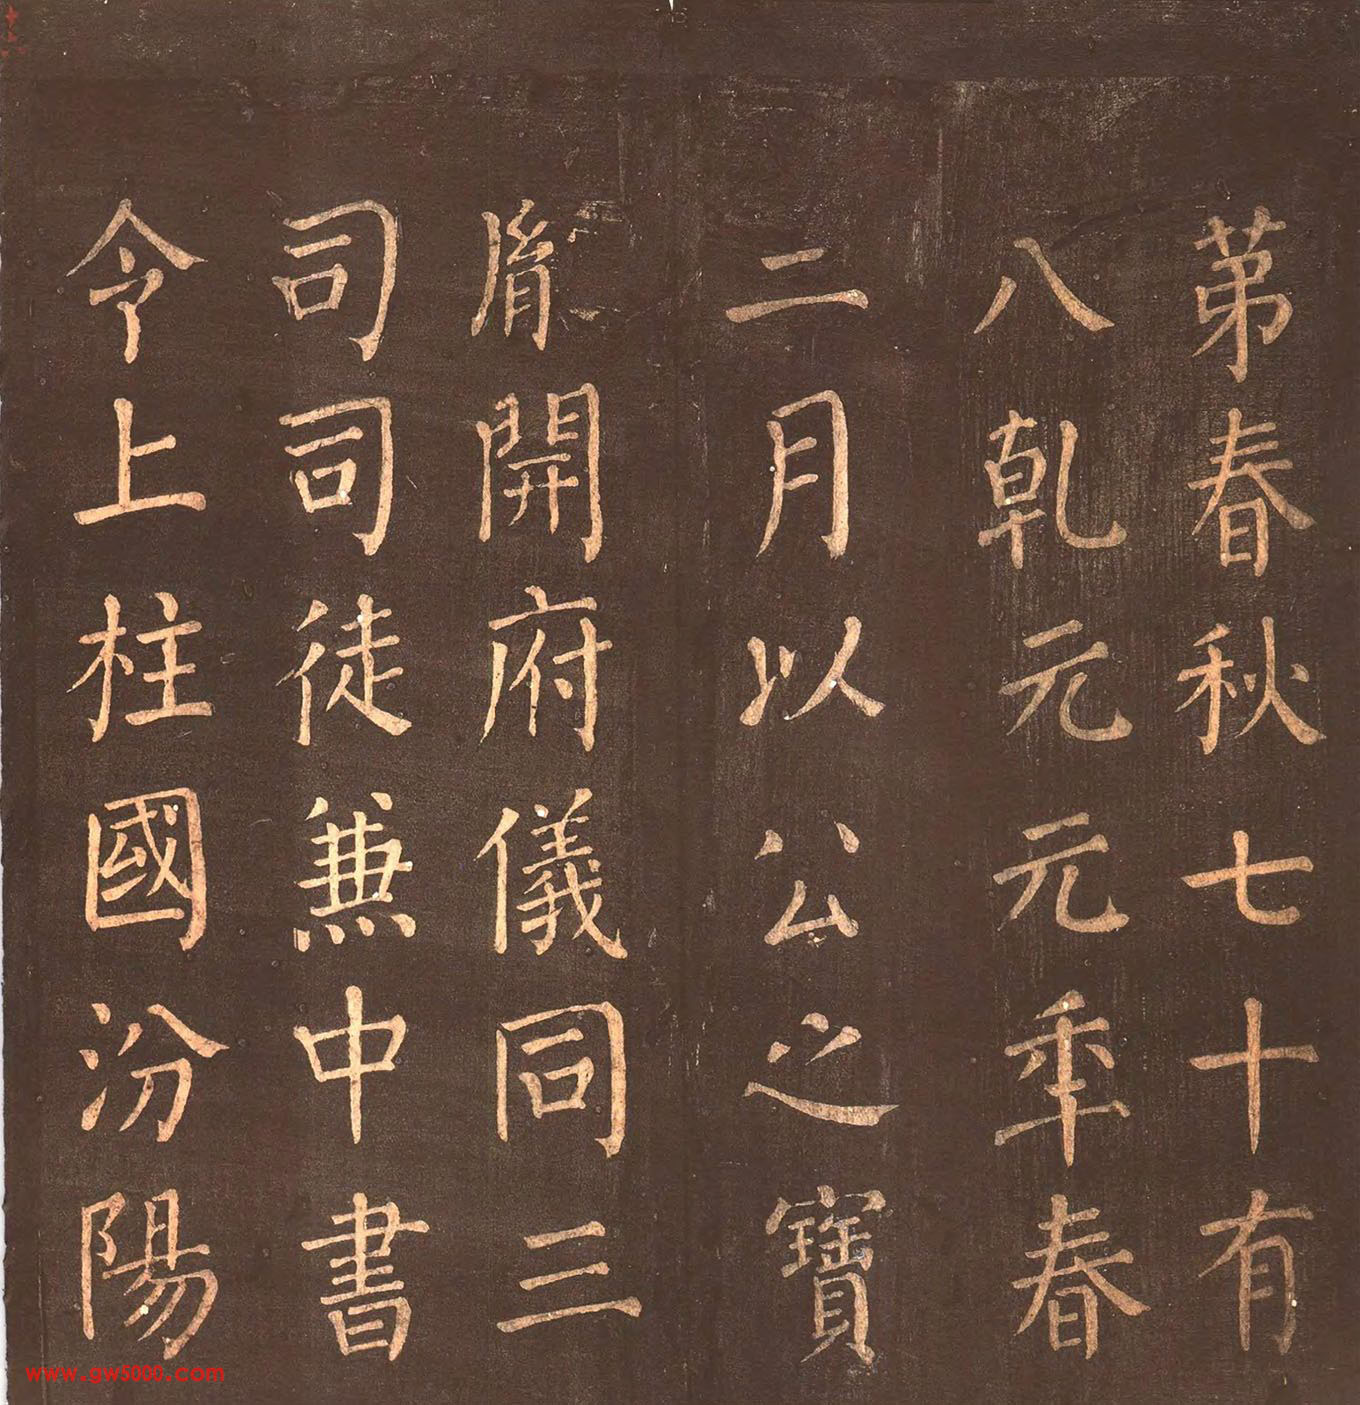 苐春秋七十有
八乹元元年春
二月以公之寶
胤開府儀同三
司司徒兼中書
令上柱國汾陽
www.gw5000.com